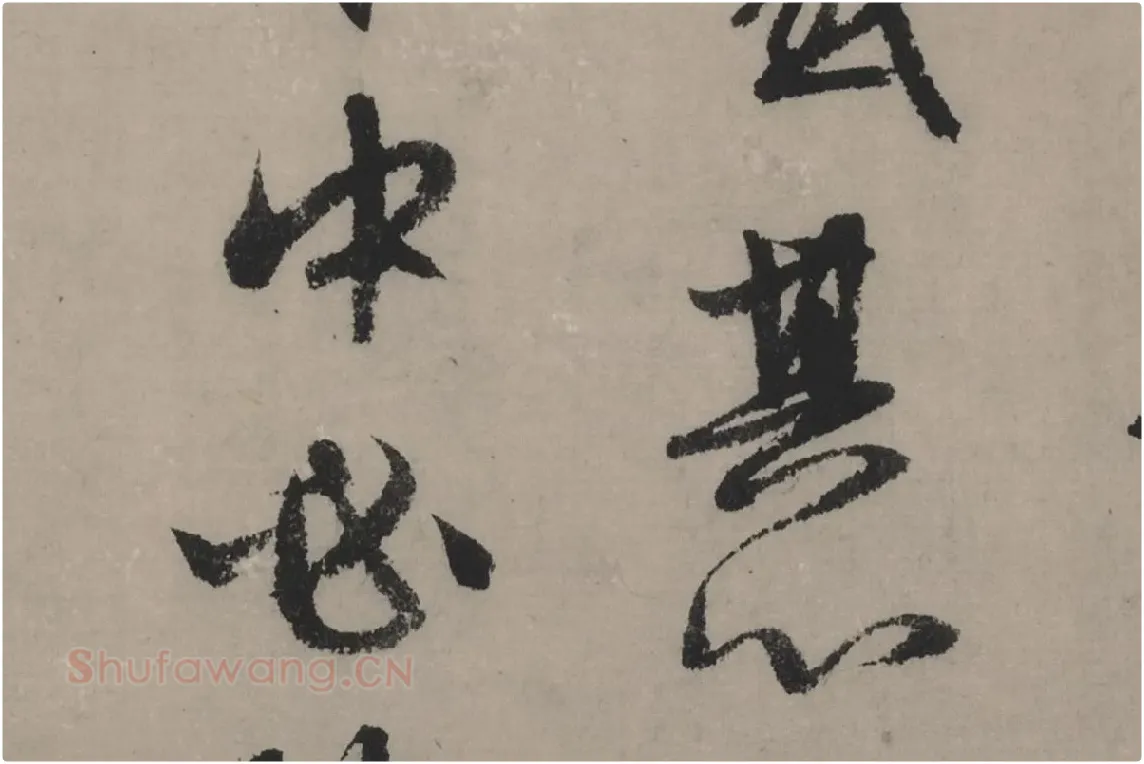 其心
中必
Shufawang.CN